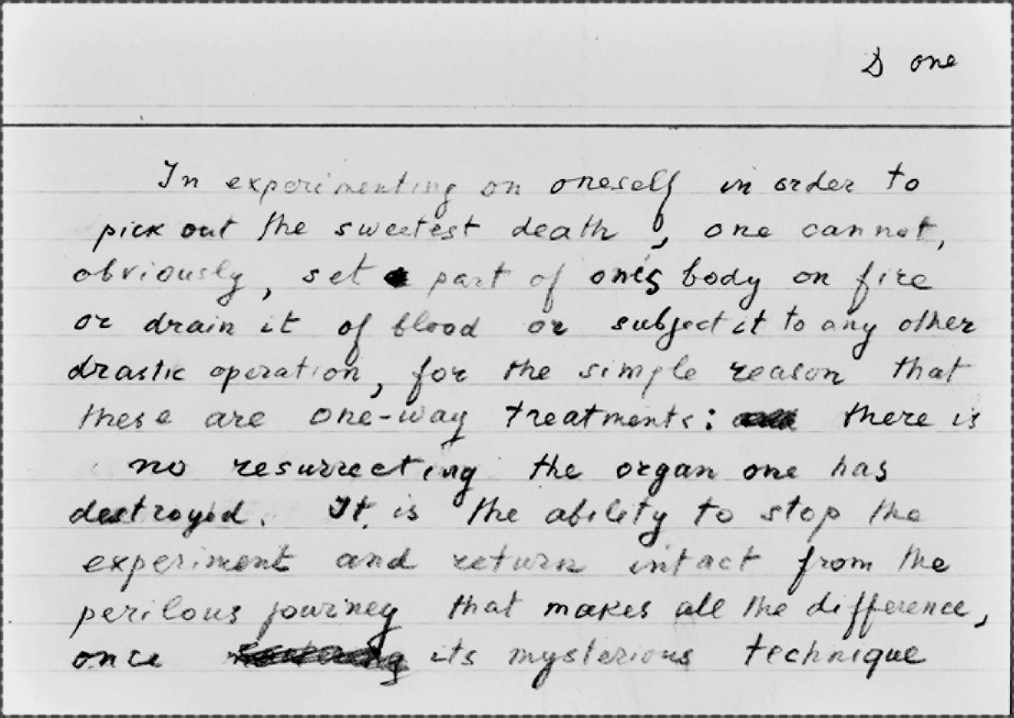 D one
In experimenting on oneself in order to
pick out the sweetest death, one cannot,
obviously, set part of one's body on fire
or drain it of blood or subject it to any other
drastic operation, for the simple reason that
these are one-way treatments: there is
no resurrecting the organ one has
destroyed. It is the ability to stop the
experiment and return intact from the
perilous journey that makes all the difference,
once its mysterious technique